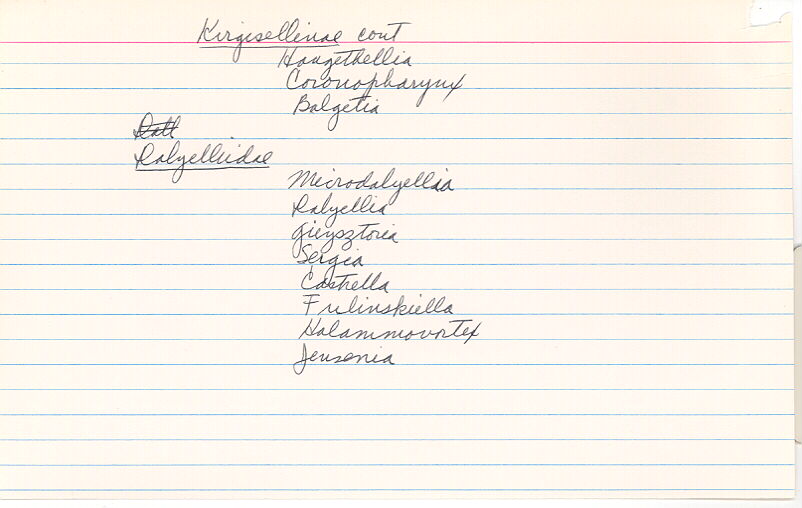 Kirgisellinae cont
Haugethellia
Coronopharynx
Balgetia
Dall
Dalyelliidae
Microdalyellia
Dalyellia
Gieysztoria
Sergia
Castrella
Fulinskiella
Halammovortex
Jensenia